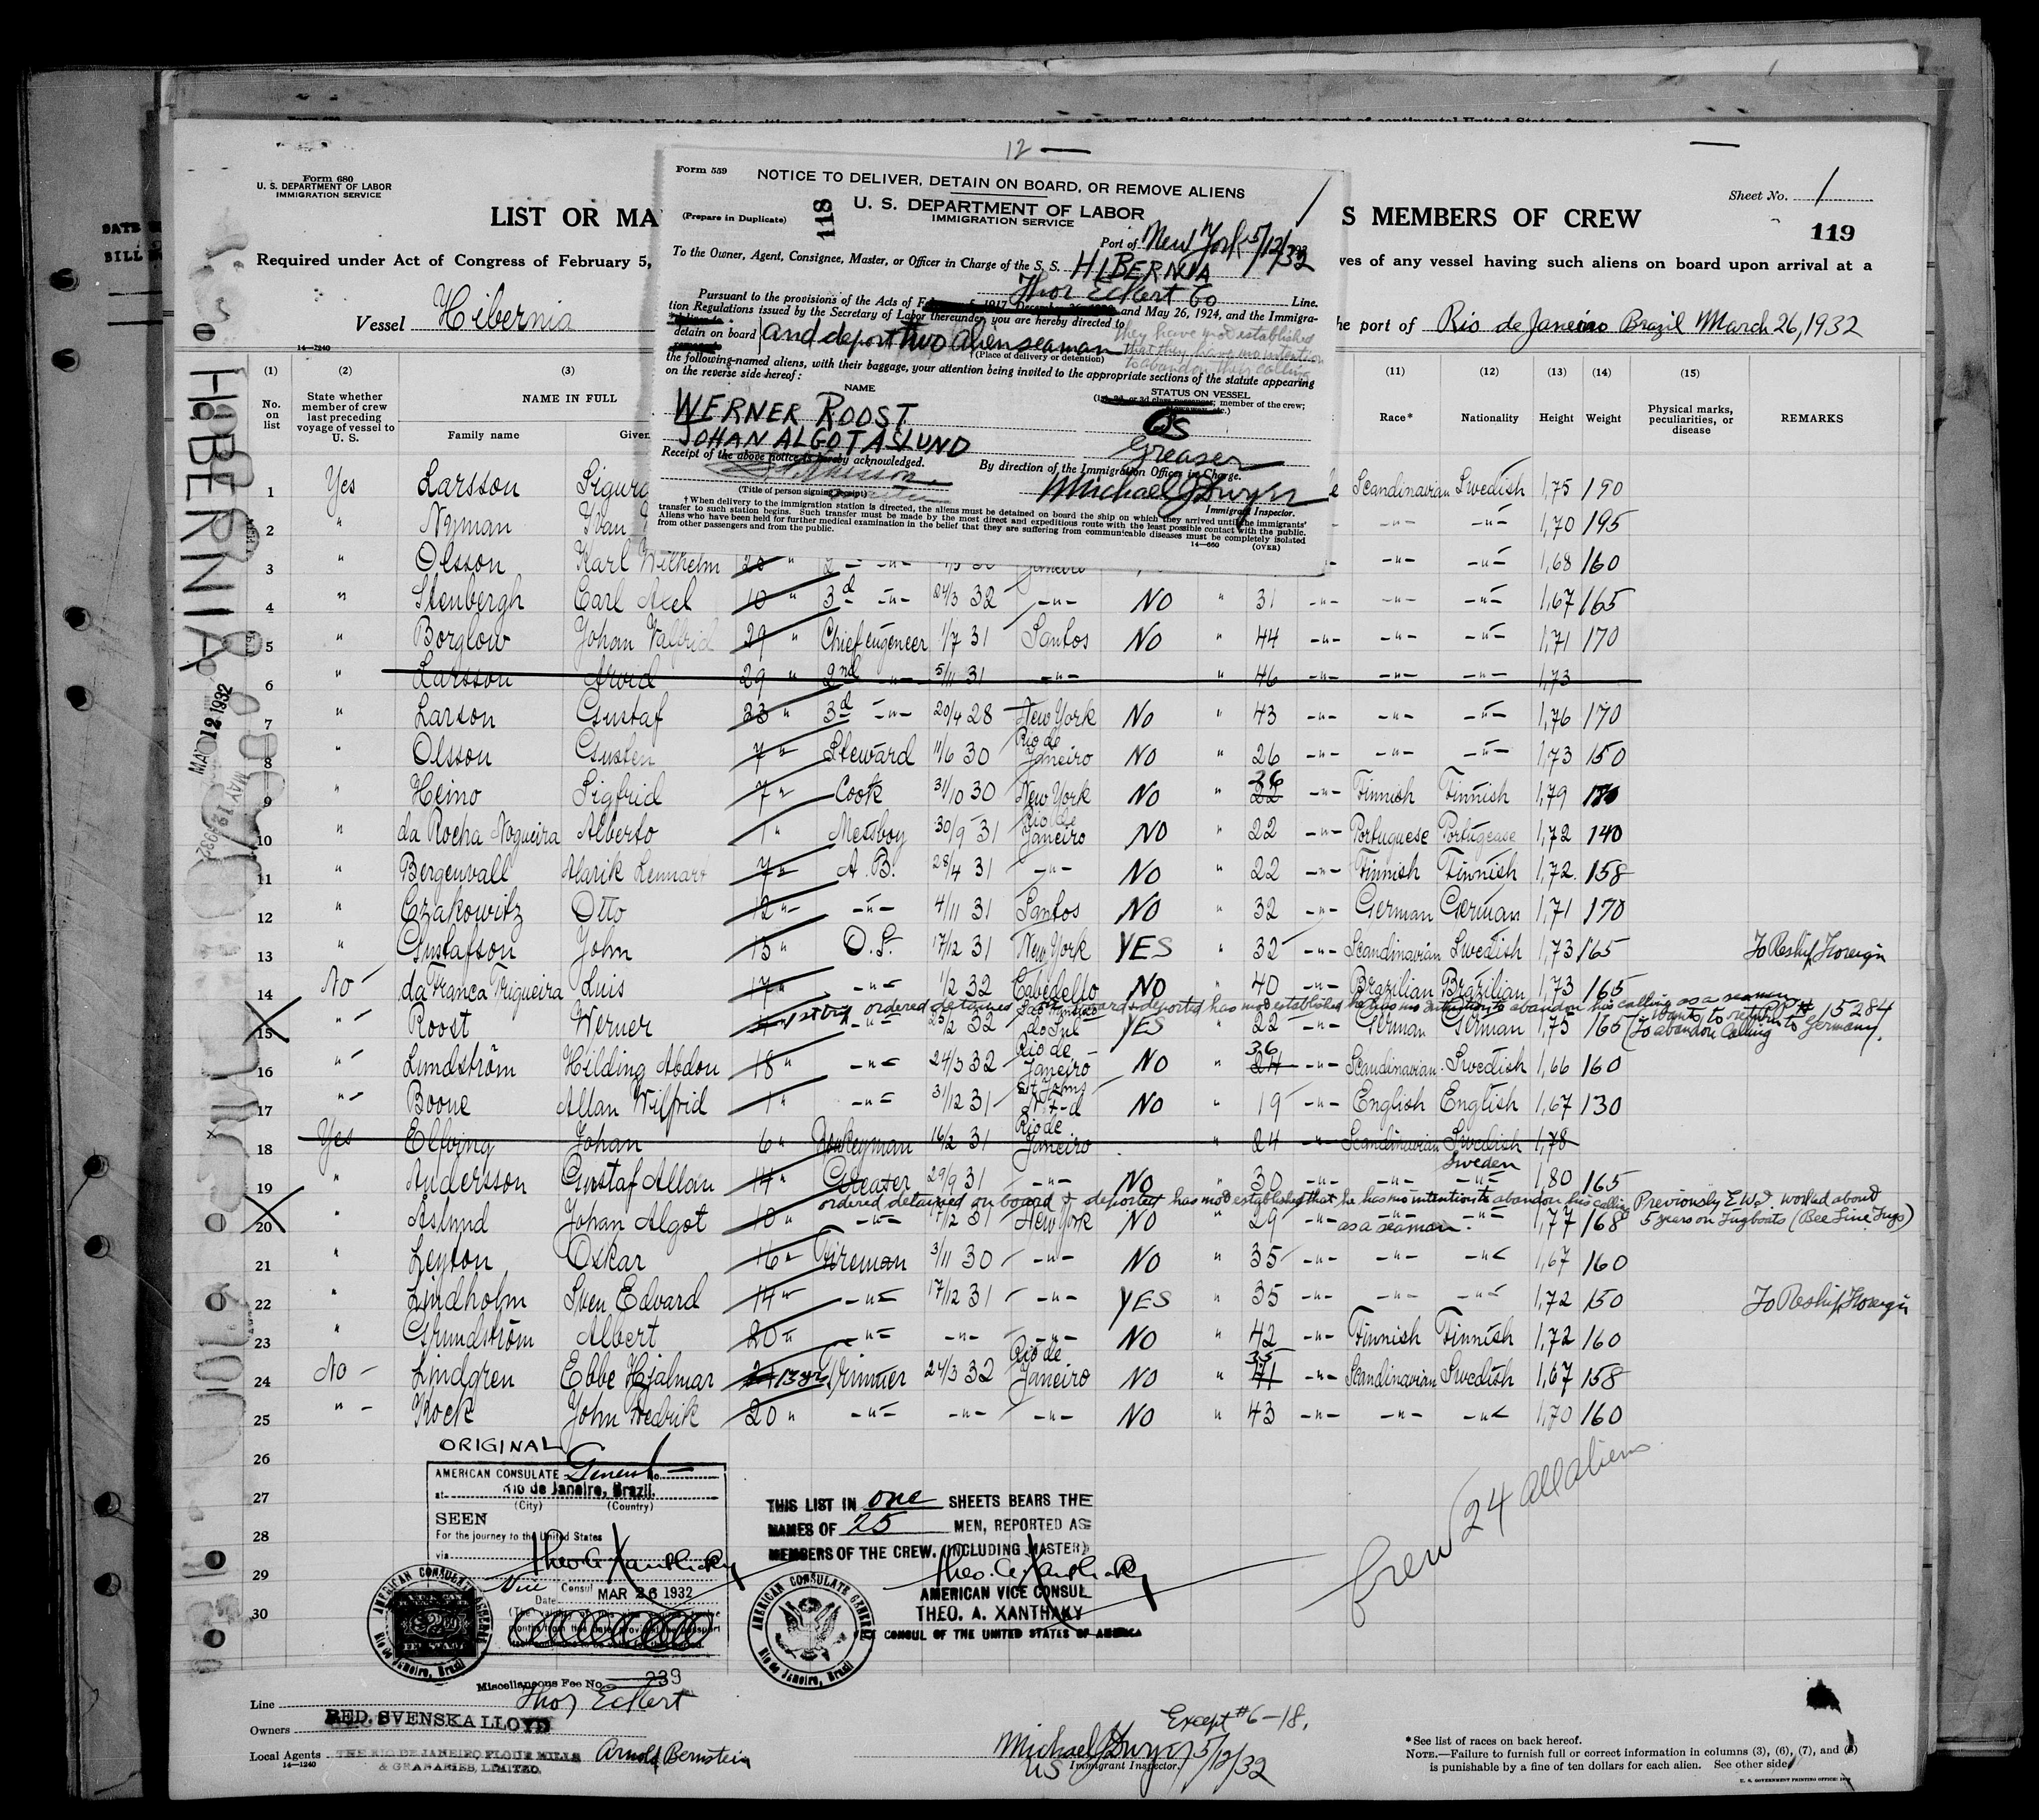 12 —
Form 680
U. S. DEPARTMENT OF LABOR
IMMIGRATION SERVICE
LIST OR MA
S MEMBERS OF CREW
Sheet No. 1
119
Required under Act of Congress of February 5,
ves of any vessel having such aliens on board upon arrival at a
Vessel Hibernia
he port of Rio de Janeiro Brazil March 26, 1932
14—1240
Form 559
NOTICE TO DELIVER, DETAIN ON BOARD, OR REMOVE ALIENS
(Prepare in Duplicate)
118
U. S. DEPARTMENT OF LABOR
IMMIGRATION SERVICE
Port of New York 5/12/32
To the Owner, Agent, Consignee, Master, or Officer in Charge of the S. S. HIBERNIA
Thor Eckert Co Line.
Pursuant to the provisions of the Acts of February 5, 1917, and May 26, 1924, and the Immigra-
tion Regulations issued by the Secretary of Labor thereunder, you are hereby directed to
they have not established
detain on board and deport two alien seaman that they have no intention
†(Place of delivery or detention) to abandon they calling
the following-named aliens, with their baggage, your attention being invited to the appropriate sections of the statute appearing
on the reverse side hereof:
NAME
STATUS ON VESSEL
member of the crew;
WERNER ROOST OS
JOHAN ALGOT ASLUND Greaser
Receipt of the above notice is hereby acknowledged.
By direction of the Immigration Officer in Charge.
(Title of person signing receipt)
Michael J Dwyer
Immigrant Inspector.
†When delivery to the immigration station is directed, the aliens must be detained on board the ship on which they arrived until the immigrants'
transfer to such station begins. Such transfer must be made by the most direct and expeditious route with the least possible contact with the public.
Aliens who have been held for further medical examination in the belief that they are suffering from communicable diseases must be completely isolated
from other passengers and from the public.
14—660 (OVER)
HIBERNIA
MAY 12 1932
(1) (2) (3) (11) (12) (13) (14) (15)
No. on list
State whether member of crew last preceding voyage of vessel to U. S.
NAME IN FULL
Family name Given
Race* Nationality Height Weight Physical marks, peculiarities, or disease REMARKS
1 Yes Larsson Sigurd e Scandinavian Swedish 1,75 190
2 " Nyman Yvan -"- -"- 1,70 195
3 " Olsson Karl Wilhelm 20 " 2 -"- Janeiro -"- -"- 1,68 160
4 " Stenbergh Carl Axel 10 " 3d -"- 24/3 32 -"- NO " 31 -"- -"- -"- 1,67 165
5 " Borglow Johan Valfrid 29 " Chief engeneer 1/7 31 Santos NO " 44 -"- -"- -"- 1,71 170
6 " Larsson Arvid 29 " 2nd -"- 5/11 31 -"- " 46 -"- -"- -"- 1,73
7 " Larson Gustaf 23 " 3d -"- 20/4 28 New York No " 43 -"- -"- -"- 1,76 170
8 " Olsson Gusten 7 " Steward 11/6 30 Rio de Janeiro NO " 26 -"- -"- -"- 1,73 150
9 " Heino Sigfrid 7 " Cook 31/10 30 New York NO " 22 26 -"- Finnish Finnish 1,79 170
10 " da Rocha Nogueira Alberto 1 " Messboy 30/9 31 Rio de Janeiro NO " 22 -"- Portuguese Portugease 1,72 140
11 " Bergenvall Alarik Lennart 7 " A. B. 28/4 31 -"- NO " 22 -"- Finnish Finnish 1,72 158
12 " Czakowitz Otto 12 " -"- 4/11 31 Santos NO " 32 -"- German German 1,71 170
13 " Gustafson John 15 " O. S. 17/12 31 New York YES " 32 -"- Scandinavian Swedish 1,73 165 To Reship Foreign
14 No da Franca Trigueira Luis 17 " -"- 1/2 32 Cabedello NO " 40 -"- Brazilian Brazilian 1,73 165
ordered detained on board & deported has not established he has no intention to abandon his calling as a seaman # 15284
15 " Roost Werner -"- 23/2 32 do Sul YES " 22 -"- German German 1,75 165 wants to return to Germany. (To abandon calling
16 " Lundström Hilding Abdon 18 " -"- 24/3 32 Rio de Janeiro NO " 24 36 -"- Scandinavian Swedish 1,66 160
17 " Boone Allan Wilfrid 1 " -"- 31/12 31 St Johns N F-d NO " 19 -"- English English 1,67 130
18 Yes Elfving Johan 6 " Donkeyman 16/2 31 Rio de Janeiro " 24 " Scandinavian Swedish 1,78
19 " Andersson Gustaf Allan 14 " Greaser 29/9 31 -"- NO " 30 -"- -"- Sweden -"- 1,80 165
ordered detained on board & deported has not established that he has no intention to abandon his calling as a seaman.
20 " Åslund Johan Algot 10 " -"- 17/12 31 New York NO " 29 -"- -"- 1,77 168 Previously E.W.I. worked about 5 years on Tugboats (Bee Line Tugs)
21 " Leyton Oskar 16 " Fireman 3/11 30 -"- NO " 35 -"- -"- -"- 1,67 160
22 " Lindholm Sven Edvard 14 " -"- 17/12 31 -"- YES " 35 -"- -"- -"- 1,72 150 To Reship Foreign
23 " Grundström Albert 20 " -"- -"- -"- NO " 42 -"- Finnish Finnish 1,72 160
24 No Lindgren Ebbe Hjalmar 13 yrs Trimmer 24/3 32 Rio de Janeiro NO " 41 35 -"- Scandinavian Swedish 1,67 158
25 " Rock John Fredrik 20 " -"- -"- -"- NO " 43 -"- -"- -"- 1,70 160
26
27
28
29
30
ORIGINAL
AMERICAN CONSULATE General No.
at Rio de Janeiro, Brazil.
(City) (Country)
SEEN
For the journey to the United States
via
Theo A. Xanthaky
Vice Consul
Date MAR 26 1932
AMERICAN CONSULATE GENERAL
Rio de Janeiro, Brazil
Miscellaneous Fee No. 239
THIS LIST IN one SHEETS BEARS THE
NAMES OF 25 MEN, REPORTED AS
MEMBERS OF THE CREW. (INCLUDING MASTER)
Theo. A. Xanthaky
AMERICAN VICE CONSUL
THEO. A. XANTHAKY
CONSUL OF THE UNITED STATES OF AMERICA
AMERICAN CONSULATE GENERAL
Rio de Janeiro, Brazil
Crew 24 all aliens
Line Thor Eckert
Owners RED. SVENSKA LLOYD
Local Agents THE RIO DE JANEIRO FLOUR MILLS & GRANARIES, LIMITED. Arnold Bernstein
14—1240
Except #6-18.
Michael J Dwyer 5/12/32
US Immigrant Inspector.
*See list of races on back hereof.
NOTE.—Failure to furnish full or correct information in columns (3), (6), (7), and (8)
is punishable by a fine of ten dollars for each alien. See other side.
U. S. GOVERNMENT PRINTING OFFICE